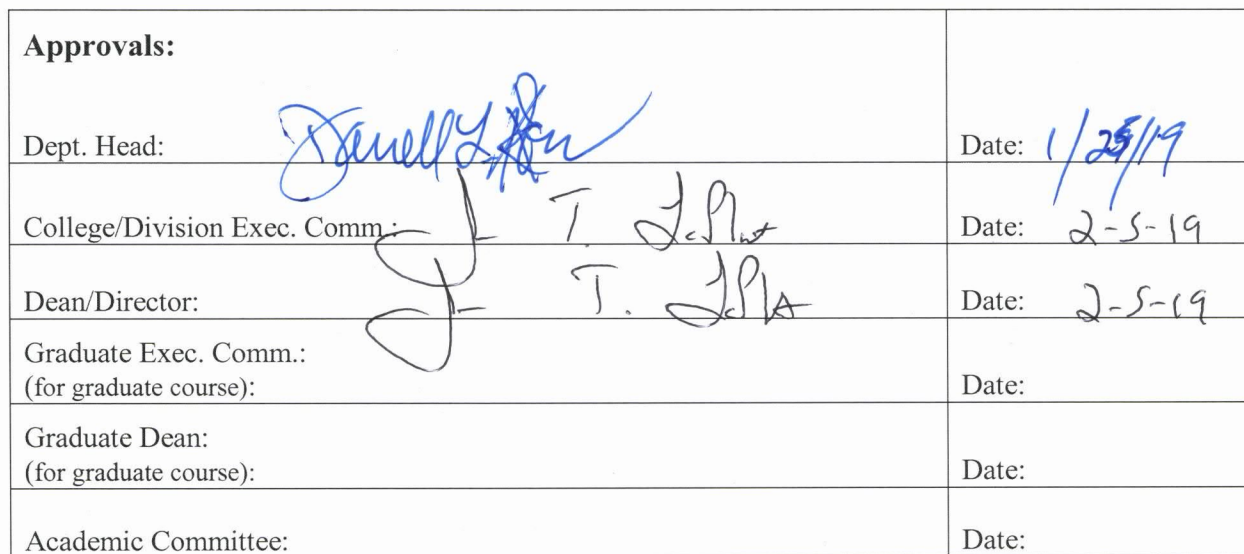 Approvals:
Dept. Head: Darrell L. Date: 1/25/19
College/Division Exec. Comm.: J T. Date: 2-5-19
Dean/Director: J T. Date: 2-5-19
Graduate Exec. Comm.:
(for graduate course): Date:
Graduate Dean:
(for graduate course): Date:
Academic Committee: Date: